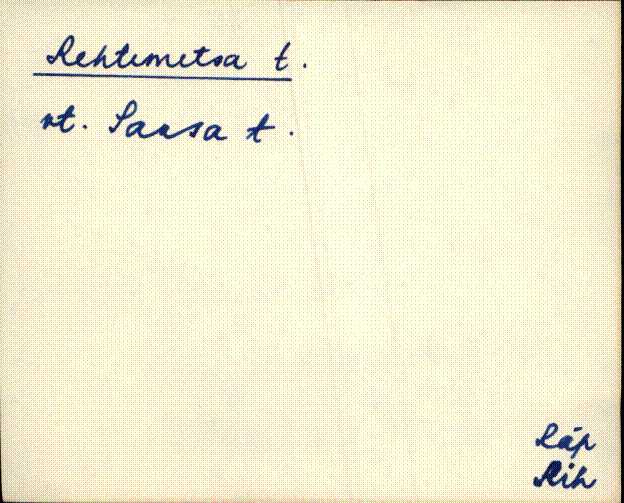 Rehtemetsa t.
vt. Sausa t.
Räp
Rih